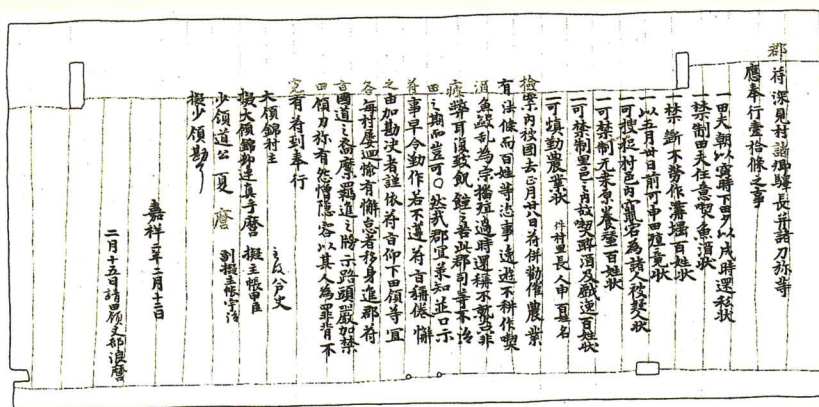 郡符深見村諸郷驛長并諸刀弥等
應奉行壹拾條之事
一田夫朝以寅時下田夕以戌時還私状
一禁制田夫任意喫魚酒状
一禁断不勞作溝堰百姓状
一以五月卅日前可申田殖竟状
一可捜捉村邑内竄宕為諸人被疑人状
一可禁制无桒原養蚕百姓状
一可禁制里邑之内故喫酔酒及戯逸百姓状
一可填勤農業状 件村里長人申百姓名
檢案内被國去正月廿八日符併勸催農業
有法條而百姓等恣事逸遊不耕作喫
酒魚敺乱為宗播殖過時還稱不熟只非
疲弊耳復致飢饉之苦此郡司等不治
田之期而豈可○然哉郡宜承知並口示
符事早令勤作若不遵符旨稱倦懈
之由加勘决者謹依符旨仰下田領等宜
各毎村屡廻愉有懈怠者移身進郡符
旨國道之裔縻羈進之牓示路頭嚴加禁
田領刀弥有怨憎隠容以其人為罪背不
寛有符到奉行
大領錦村主 主政八戸史
擬大領錦部連真手麿 擬主帳甲臣
少領道公 夏麿 副擬主帳宇治
擬少領勘了
嘉祥二年二月十二日
二月十五日請田領丈部浪麿